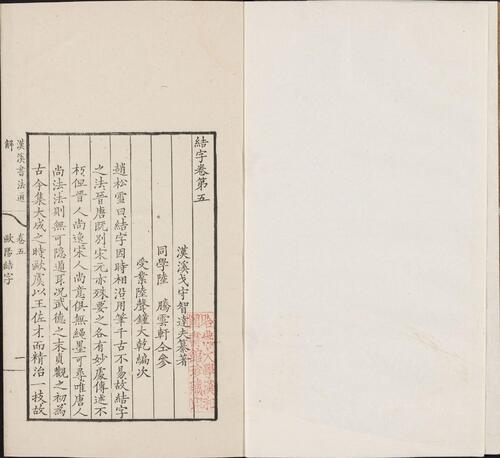 結字卷第五
漢溪戈守智達夫纂著
同學陸 騰雲軒仝參
受業陸聲鐘大乾編次
趙松雪曰結字因時相沿用筆千古不易故結字
之法晉唐既别宋元亦殊要之各有妙處傳述不
朽但晉人尚逸宋人尚意俱無繩墨可尋唯唐人
尚法法則無可隱遁耳况武德之末貞觀之初爲
古今集大成之時歐虞以王佐才而精治一技故
漢溪書法通解 卷五 歐陽結字 一
哈佛大學漢和
圖書館珍藏印